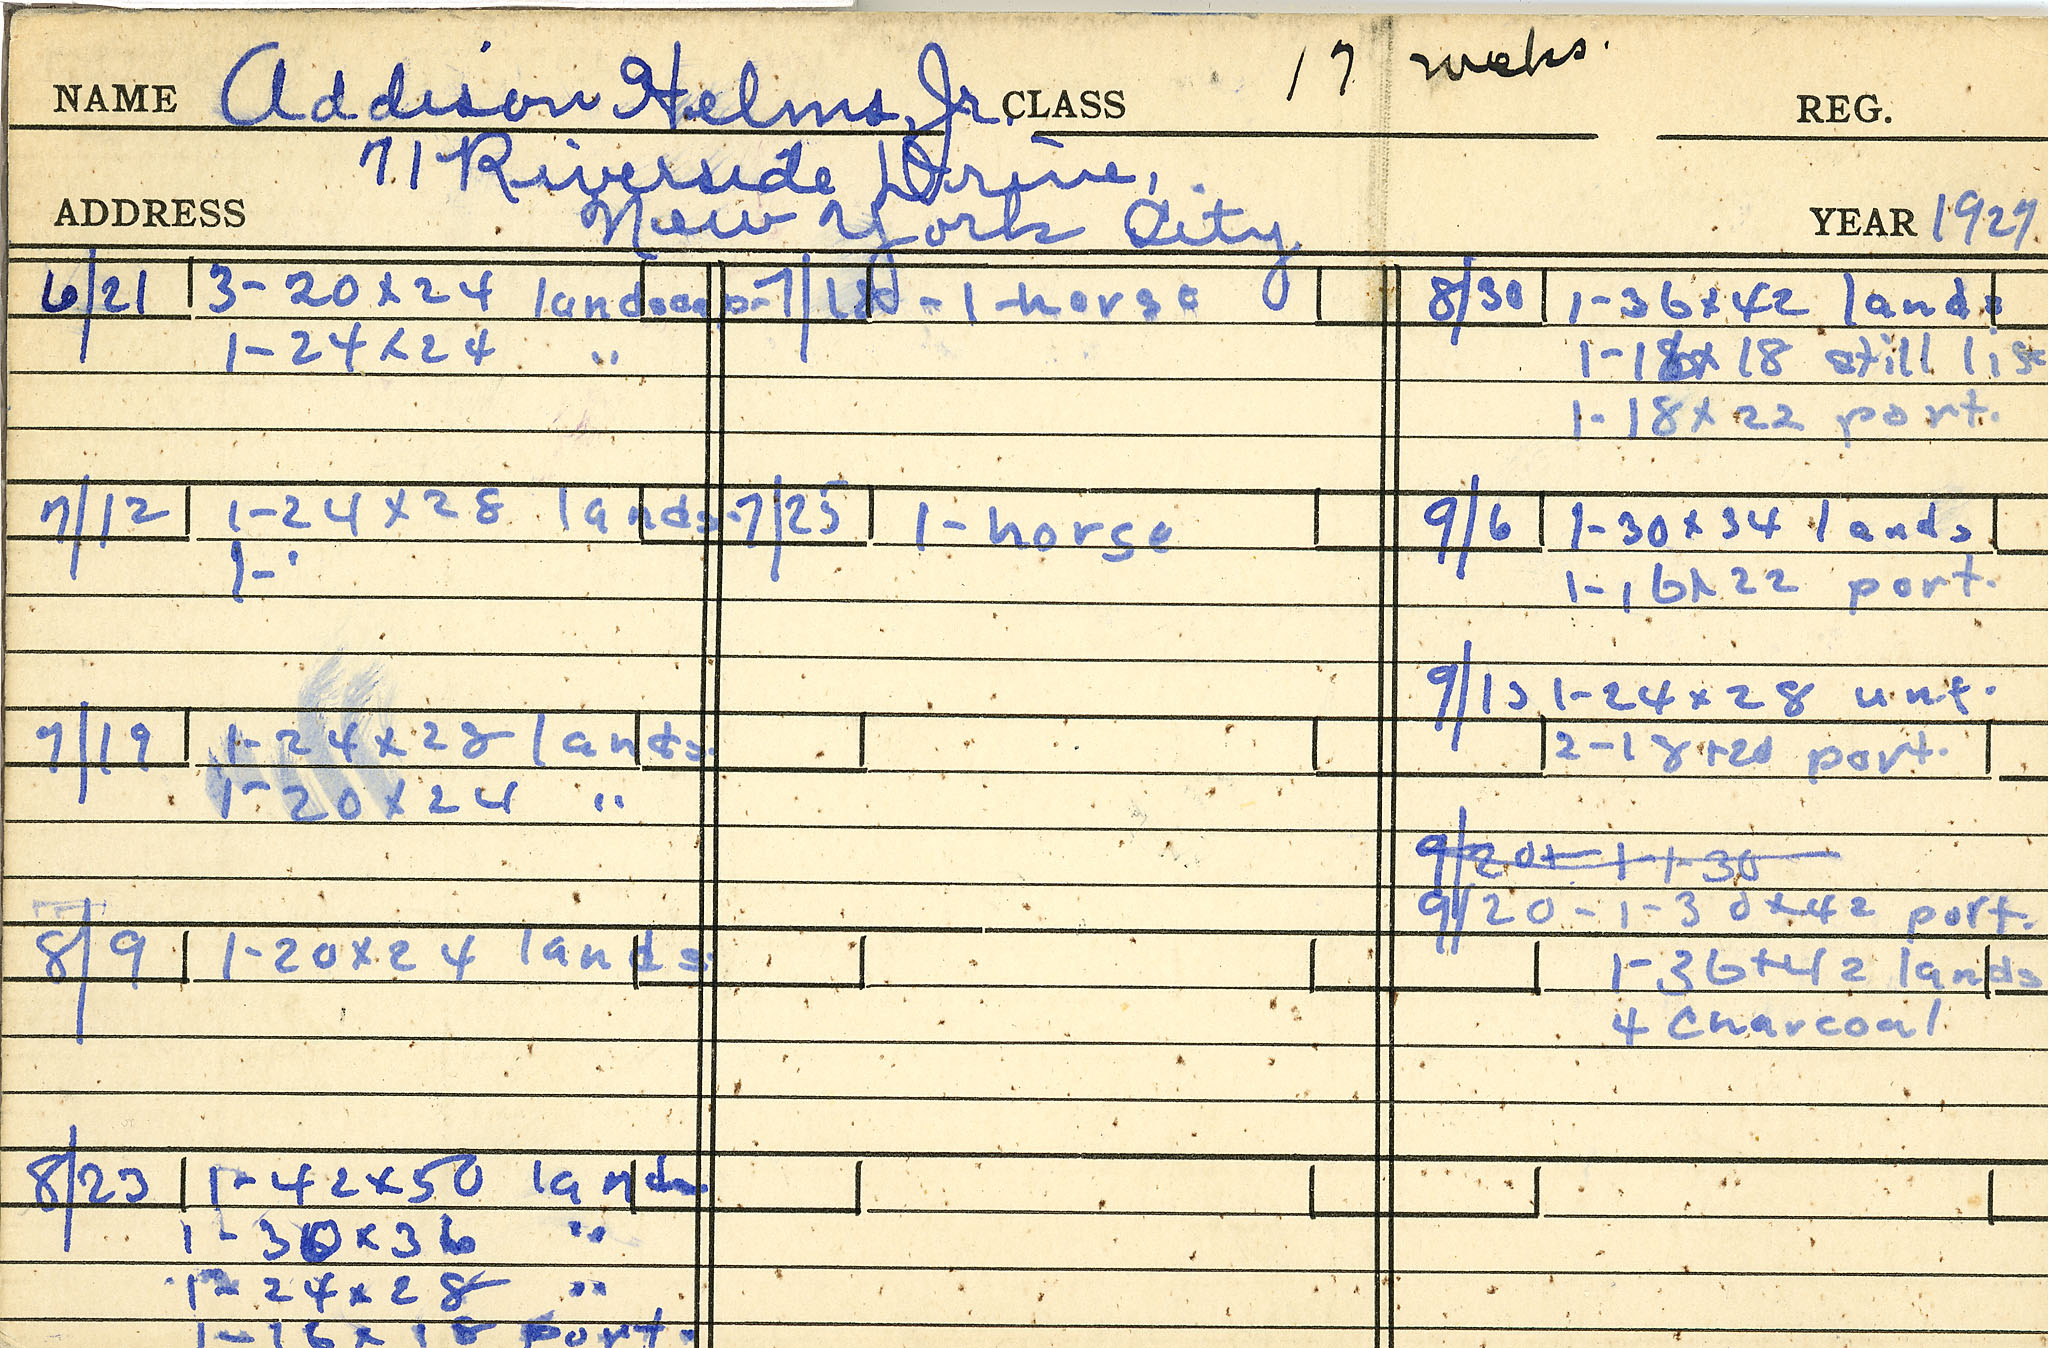 17 weeks.
NAME Addison Helms, Jr. CLASS REG.
71 Riverside Drive,
ADDRESS New York City YEAR 1927
6/21 3-20x24 landscap-
1-24x24 "
7/12 1-24x28 lands.
1-
7/19 1-24x28 lands.
1-20x24 "
8/9 1-20x24 lands.
8/23 1-42x50 lands
1-30x36 "
1-24x28 "
1-16x18 port.
7/ - 1-horse
7/25 1-horse
8/30 1-36x42 lands
1-18 still
1-18x22 port.
9/6 1-30x34 lands
1-16x22 port.
9/13 1-24x28 unf.
2-18x20 port.
9/20 1-1-30
9/20-1-30x42 port.
1-36x42 lands
4 charcoal